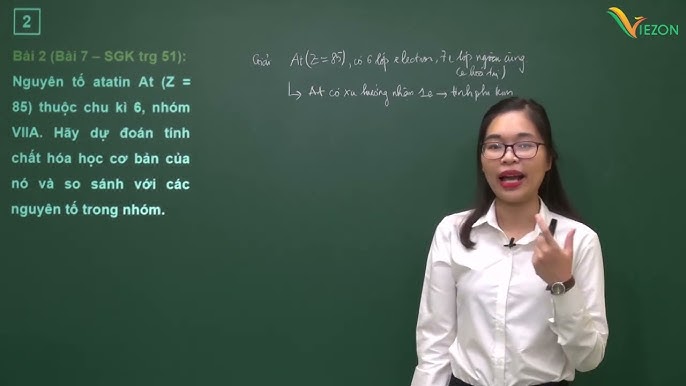 2
VIEZON
Bài 2 (Bài 7 – SGK trg 51):
Nguyên tố atatin At (Z =
85) thuộc chu kì 6, nhóm
VIIA. Hãy dự đoán tính
chất hóa học cơ bản của
nó và so sánh với các
nguyên tố trong nhóm.
At (Z = 85), có 6 lớp electron, 7e lớp ngoài cùng
(e hóa trị)
↳ At có xu hướng nhận 1e → tính phi kim